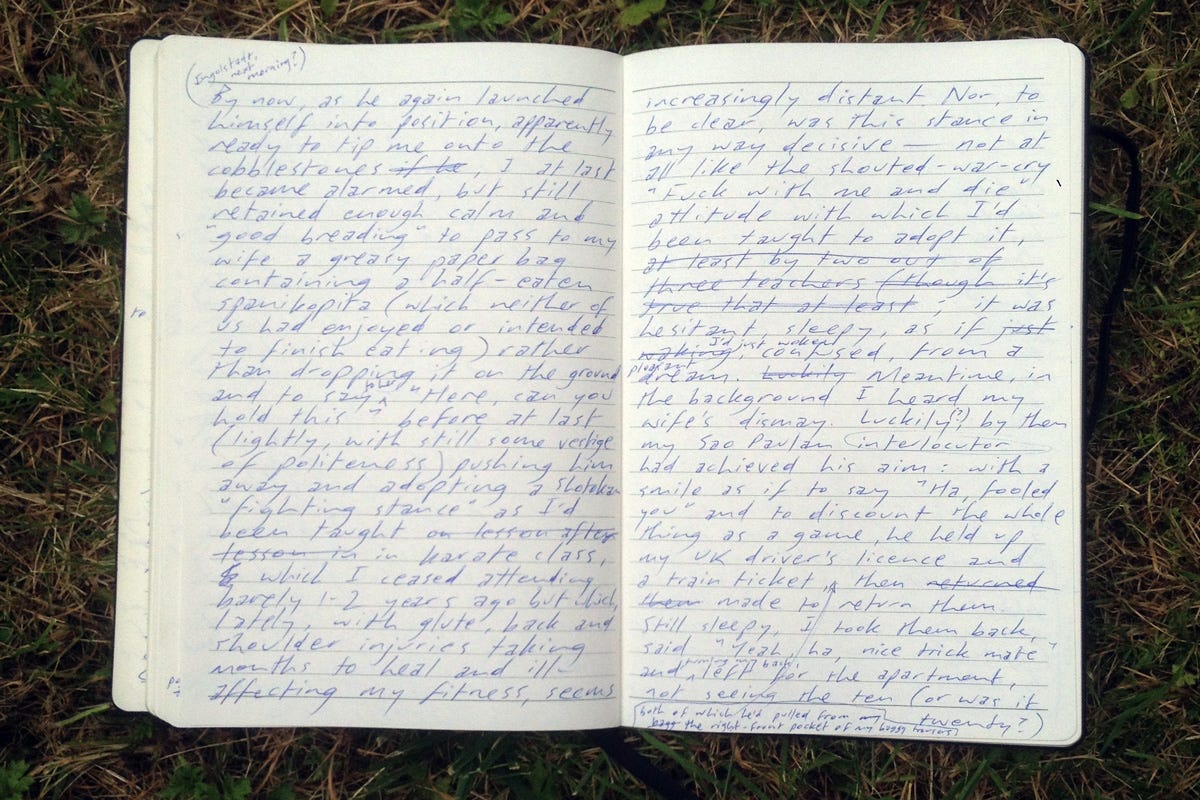 (Ingolstadt,
next
morning?)
By now, as he again launched
himself into position, apparently
ready to tip me onto the
cobblestones if he, I at last
became alarmed, but still
retained enough calm and
"good breading" to pass to my
wife a greasy paper bag
containing a half-eaten
spanikopita (which neither of
us had enjoyed or intended
to finish eating) rather
than dropping it on the ground
and to say "Here, can you
hold this" before at last
(lightly, with still some vestige
of politeness) pushing him
away and adopting a Shotokan
"fighting stance" as I'd
been taught on lesson after
lesson in in karate class,
which I ceased attending
barely 1-2 years ago but which,
lately, with glute, back and
shoulder injuries taking
months to heal and ill-
affecting my fitness, seems
increasingly distant Nor, to
be clear, was this stance in
any way decisive — not at
all like the shouted-war-cry
"Fuck with me and die"
attitude with which I'd
been taught to adopt it,
at least by two out of
three teachers (though it's
true that at least ; it was
hesitant, sleepy, as if just
waking, I'd just woken confused, from a
pleasant dream. Luckily Meantime, in
the background I heard my
wife's dismay. Luckily(?) by then
my Sao Paulan interlocutor
had achieved his aim: with a
smile as if to say "Ha, fooled
you" and to discount the whole
thing as a game, he held up
my UK driver's licence and
a train ticket, then returned
them made to return them.
Still sleepy, I took them back,
said "Yeah, ha, nice trick mate"
and, turning my back, left for the apartment,
not seeing the ten (or was it
twenty?)
both of which he'd pulled from my
bagg the right-front pocket of my baggy trousers